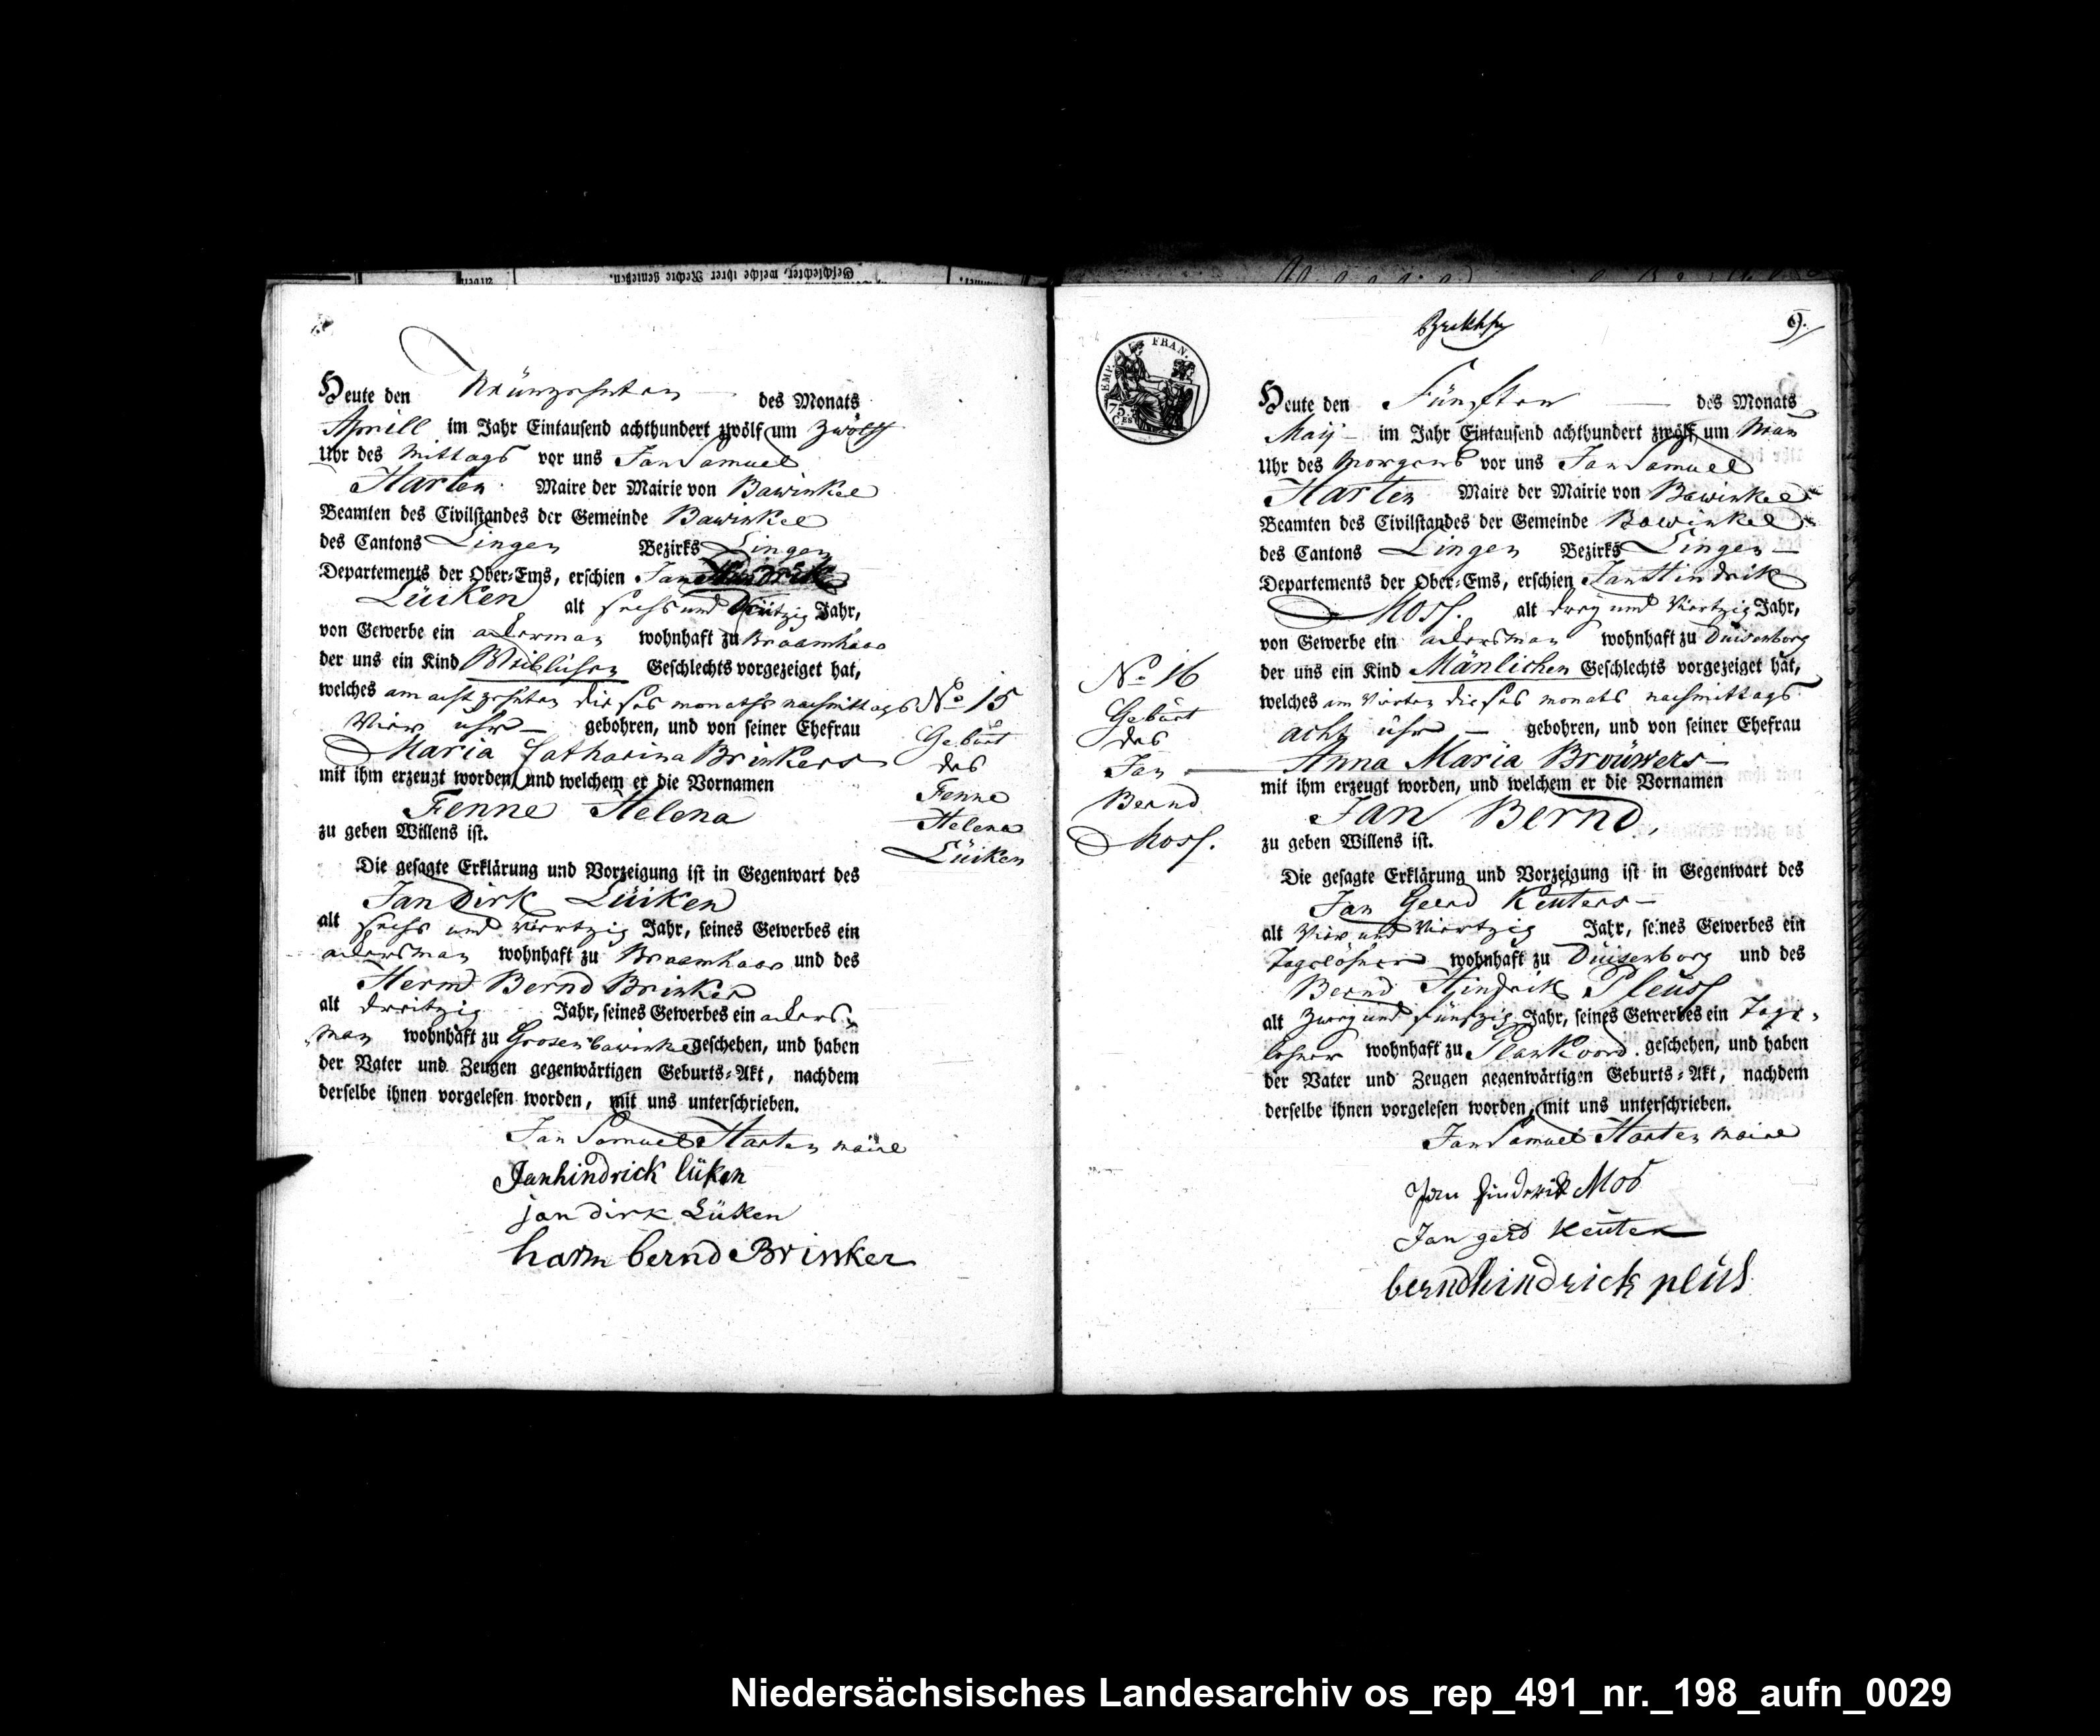 Heute den Neunzehnten des Monats
Aprill im Jahr Eintausend achthundert zwölf um Zwölff
Uhr des Mittags vor uns Jan Samuel
Harten Maire der Mairie von Bawinkel
Beamten des Civilstandes der Gemeinde Bawinkel
des Cantons Lingen Bezirks Lingen
Departements der Ober-Ems, erschien Jan Hindrik
Lüiken alt sechs und Jahr,
von Gewerbe ein ackerman wohnhaft zu Braamhaar
der uns ein Kind Weiblichen Geschlechts vorgezeiget hat,
welches am acht zehnten dieses monaths nachmittags
Vier uhr gebohren, und von seiner Ehefrau
Maria Catharina Brinkers
mit ihm erzeugt worden, und welchem er die Vornamen
Fenne Helena
zu geben Willens ist.
Die gesagte Erklärung und Vorzeigung ist in Gegenwart des
Jan Dirk Lüiken
alt sechs und Viertzig Jahr, seines Gewerbes ein
ackersman wohnhaft zu Braamhaar und des
Herm Bernd Brinker
alt dreitzig Jahr, seines Gewerbes ein ackers
man wohnhaft zu Grosen bawinkel geschehen, und haben
der Vater und Zeugen gegenwärtigen Geburts-Akt, nachdem
derselbe ihnen vorgelesen worden, mit uns unterschrieben.
Jan Samuel Harten maire
Janhindrick lüken
jan dirk Lüken
harm bernd Brinker
No 15
Geburt
des
Fenne
Helena
Lüiken
9.
EMP. FRAN.
75.
CES
Heute den Fünften des Monats
Maij im Jahr Eintausend achthundert zwölf um Neun
Uhr des Morgens vor uns Jan Samuel
Harten Maire der Mairie von Bawinkel
Beamten des Civilstandes der Gemeinde Bawinkel
des Cantons Lingen Bezirks Lingen
Departements der Ober-Ems, erschien Jan Hindrik
Moss. alt drey und Viertzig Jahr,
von Gewerbe ein ackersman wohnhaft zu Duisenborg
der uns ein Kind Mänlichen Geschlechts vorgezeiget hat,
welches am Vierten dieses monats nachmittags
acht uhr gebohren, und von seiner Ehefrau
Anna Maria Brouwers
mit ihm erzeugt worden, und welchem er die Vornamen
Jan Bernd,
zu geben Willens ist.
Die gesagte Erklärung und Vorzeigung ist in Gegenwart des
Jan Geerd Keuters
alt Vier und Viertzig Jahr, seines Gewerbes ein
Tagelöhner wohnhaft zu Duisenborg und des
Bernd Hindrik Pleuss
alt Zweij und fünfzig Jahr, seines Gewerbes ein Tage-
löhner wohnhaft zu Plankoord. geschehen, und haben
der Vater und Zeugen gegenwärtigen Geburts-Akt, nachdem
derselbe ihnen vorgelesen worden, mit uns unterschrieben.
Jan Samuel Harten maire
Jan Hinderick Mos
Jan gerd Keuter
berndhindrick plüs
No 16
Geburt
des
Jan
Bernd
Moss.
Niedersächsisches Landesarchiv os_rep_491_nr._198_aufn_0029